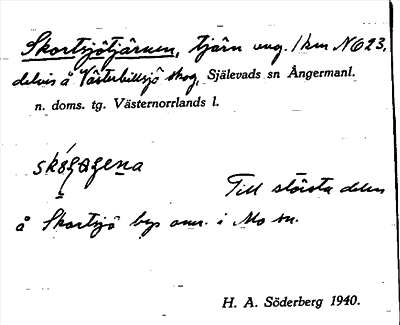 Skortsjötjärnen, tjärn ung. 1 km N 623,
delvis å Västerbillsjö skog, Själevads sn Ångermanl.
n. doms. tg. Västernorrlands l.
Till största delen
å Skortsjö bys omr. i Mo sn.
H. A. Söderberg 1940.